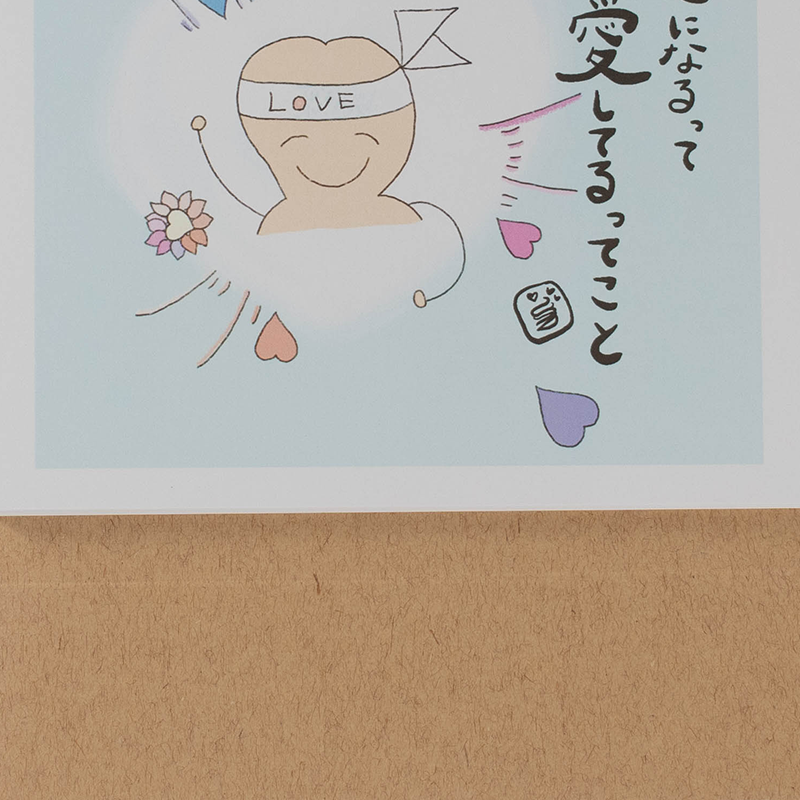 になるって
愛してるってこと
LOVE